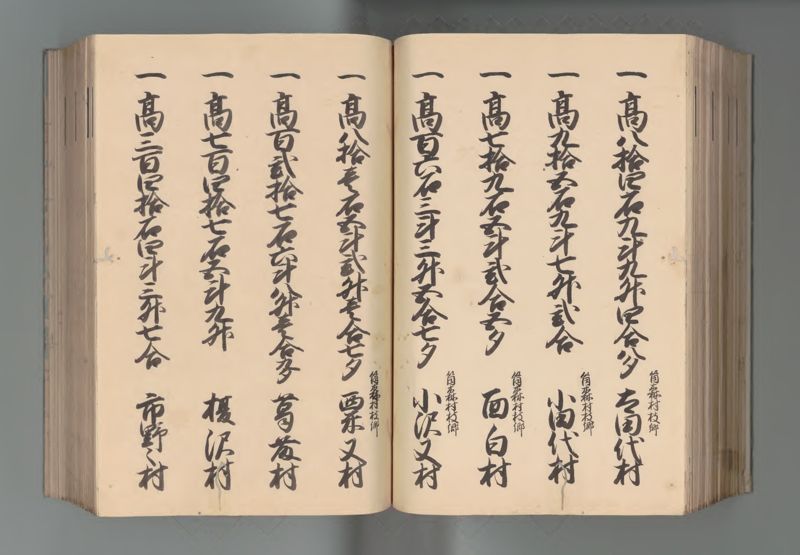 一 高八拾四石九斗九升四合八夕 筒森村枝郷 大田代村
一 高九拾五石九斗七升弐合 筒森村枝郷 小田代村
一 高七拾九石五斗弐合五夕 筒森村枝郷 面白村
一 高百六石三斗三升五合七夕 筒森村枝郷 小沢又村
一 高八拾壱石五斗弐升壱合七夕 筒森村枝郷 粟又村
一 高百弐拾七石六斗八升壱合夕 葛藤村
一 高七百四拾七石五斗九升 沢村
一 高三百四拾石四斗三升七合 市野々村